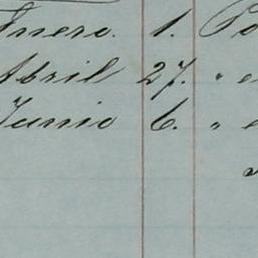 Enero. 1. Po
Abril 27. " e
Junio 6. " e